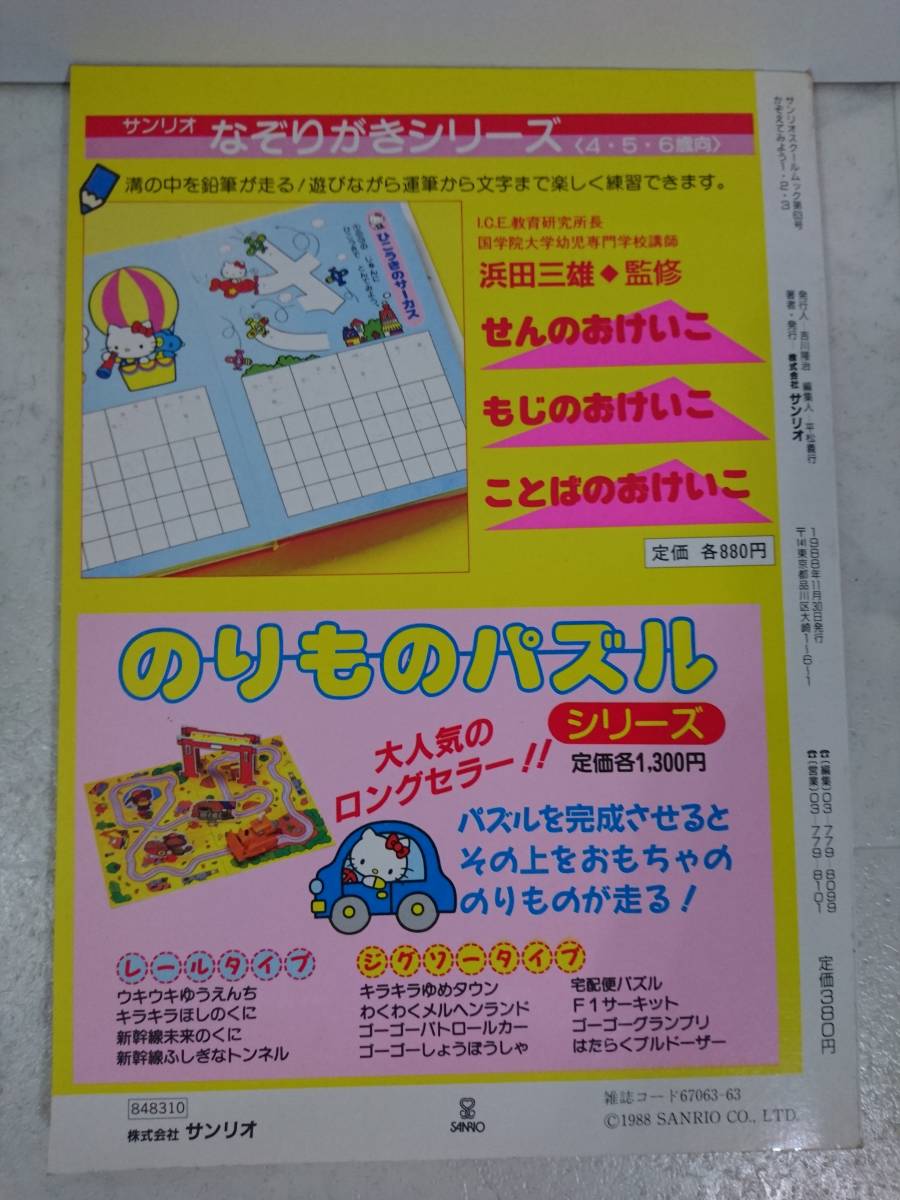 サンリオ なぞりがきシリーズ〈4・5・6歳向〉
溝の中を鉛筆が走る!遊びながら運筆から文字まで楽しく練習できます。
ひこうきのサーカス
I.C.E.教育研究所長
国学院大学幼児専門学校講師
浜田三雄◆監修
せんのおけいこ
もじのおけいこ
ことばのおけいこ
定価 各880円
のりものパズル
シリーズ
定価各1,300円
大人気の
ロングセラー!!
パズルを完成させると
その上をおもちゃの
のりものが走る!
レールタイプ
ウキウキゆうえんち
キラキラほしのくに
新幹線未来のくに
新幹線ふしぎなトンネル
ジグソータイプ
キラキラゆめタウン
わくわくメルヘンランド
ゴーゴーパトロールカー
ゴーゴーしょうぼうしゃ
宅配便パズル
F1サーキット
ゴーゴーグランプリ
はたらくブルドーザー
848310
株式会社 サンリオ
SANRIO
雑誌コード67063-63
©1988 SANRIO CO., LTD.
サンリオスクールムック第63号
かぞえてみよう1・2・3
発行人 吉川隆治 編集人 平松義行
著者・発行 株式会社 サンリオ
1988年11月30日発行
〒141 東京都品川区大崎1-6-1
☎(編集)03-779-8099
☎(営業)03-779-8101
定価380円